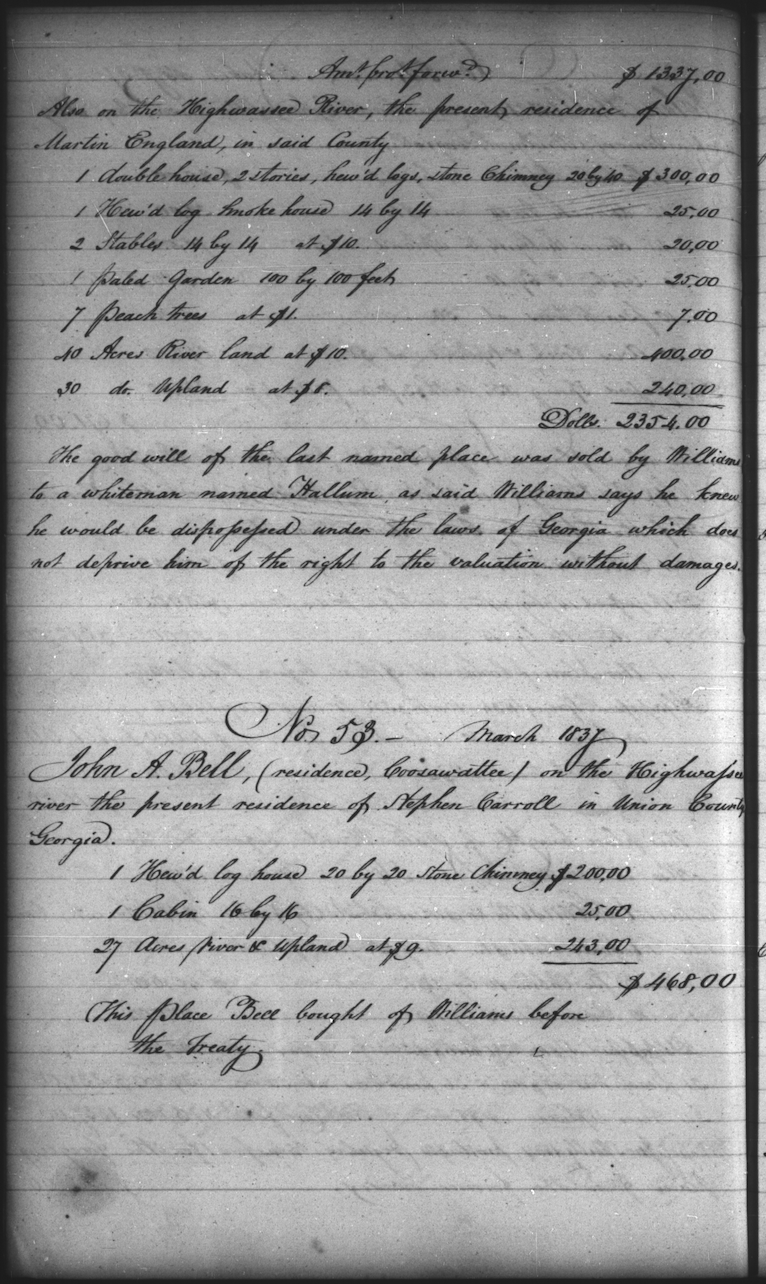 Amt. brot. forwd. $1337,00
Also on the Highwassee River, the present residence of
Martin England, in said County
1 double house, 2 stories, hew'd logs, stone Chimney 20 by 40 $300,00
1 Hew'd log Smoke house 14 by 14 25,00
2 Stables 14 by 14 at $10. 20,00
1 Paled Garden 100 by 100 feet 25,00
7 Peach trees at $1. 7,00
40 Acres River land at $10. 400,00
30 do. Upland at $8. 240,00
Dolls. 2354.00
The good will of the last named place was sold by Williams
to a whiteman named Hallum, as said Williams says he knew
he would be dispossessed under the laws of Georgia which does
not deprive him of the right to the valuation without damages.
No. 53. – March 1837
John A. Bell, (residence, Coosawattee) on the Highwassee
river the present residence of Stephen Carroll in Union County
Georgia.
1 Hew'd log house 20 by 20 stone Chimney $200,00
1 Cabin 16 by 16 25,00
27 Acres River & Upland at $9. 243,00
$468,00
This Place Bell bought of Williams before
the Treaty.